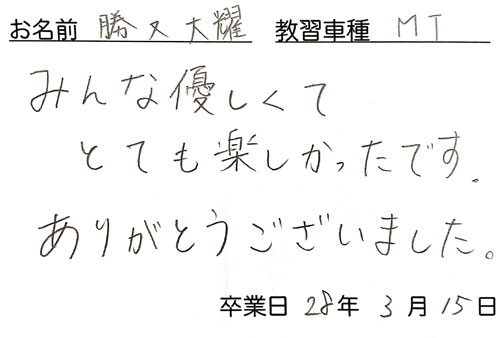 お名前 勝又大耀 教習車種 MT
みんな優しくて
とても楽しかったです.
ありがとうございました。
卒業日 28年 3月 15日